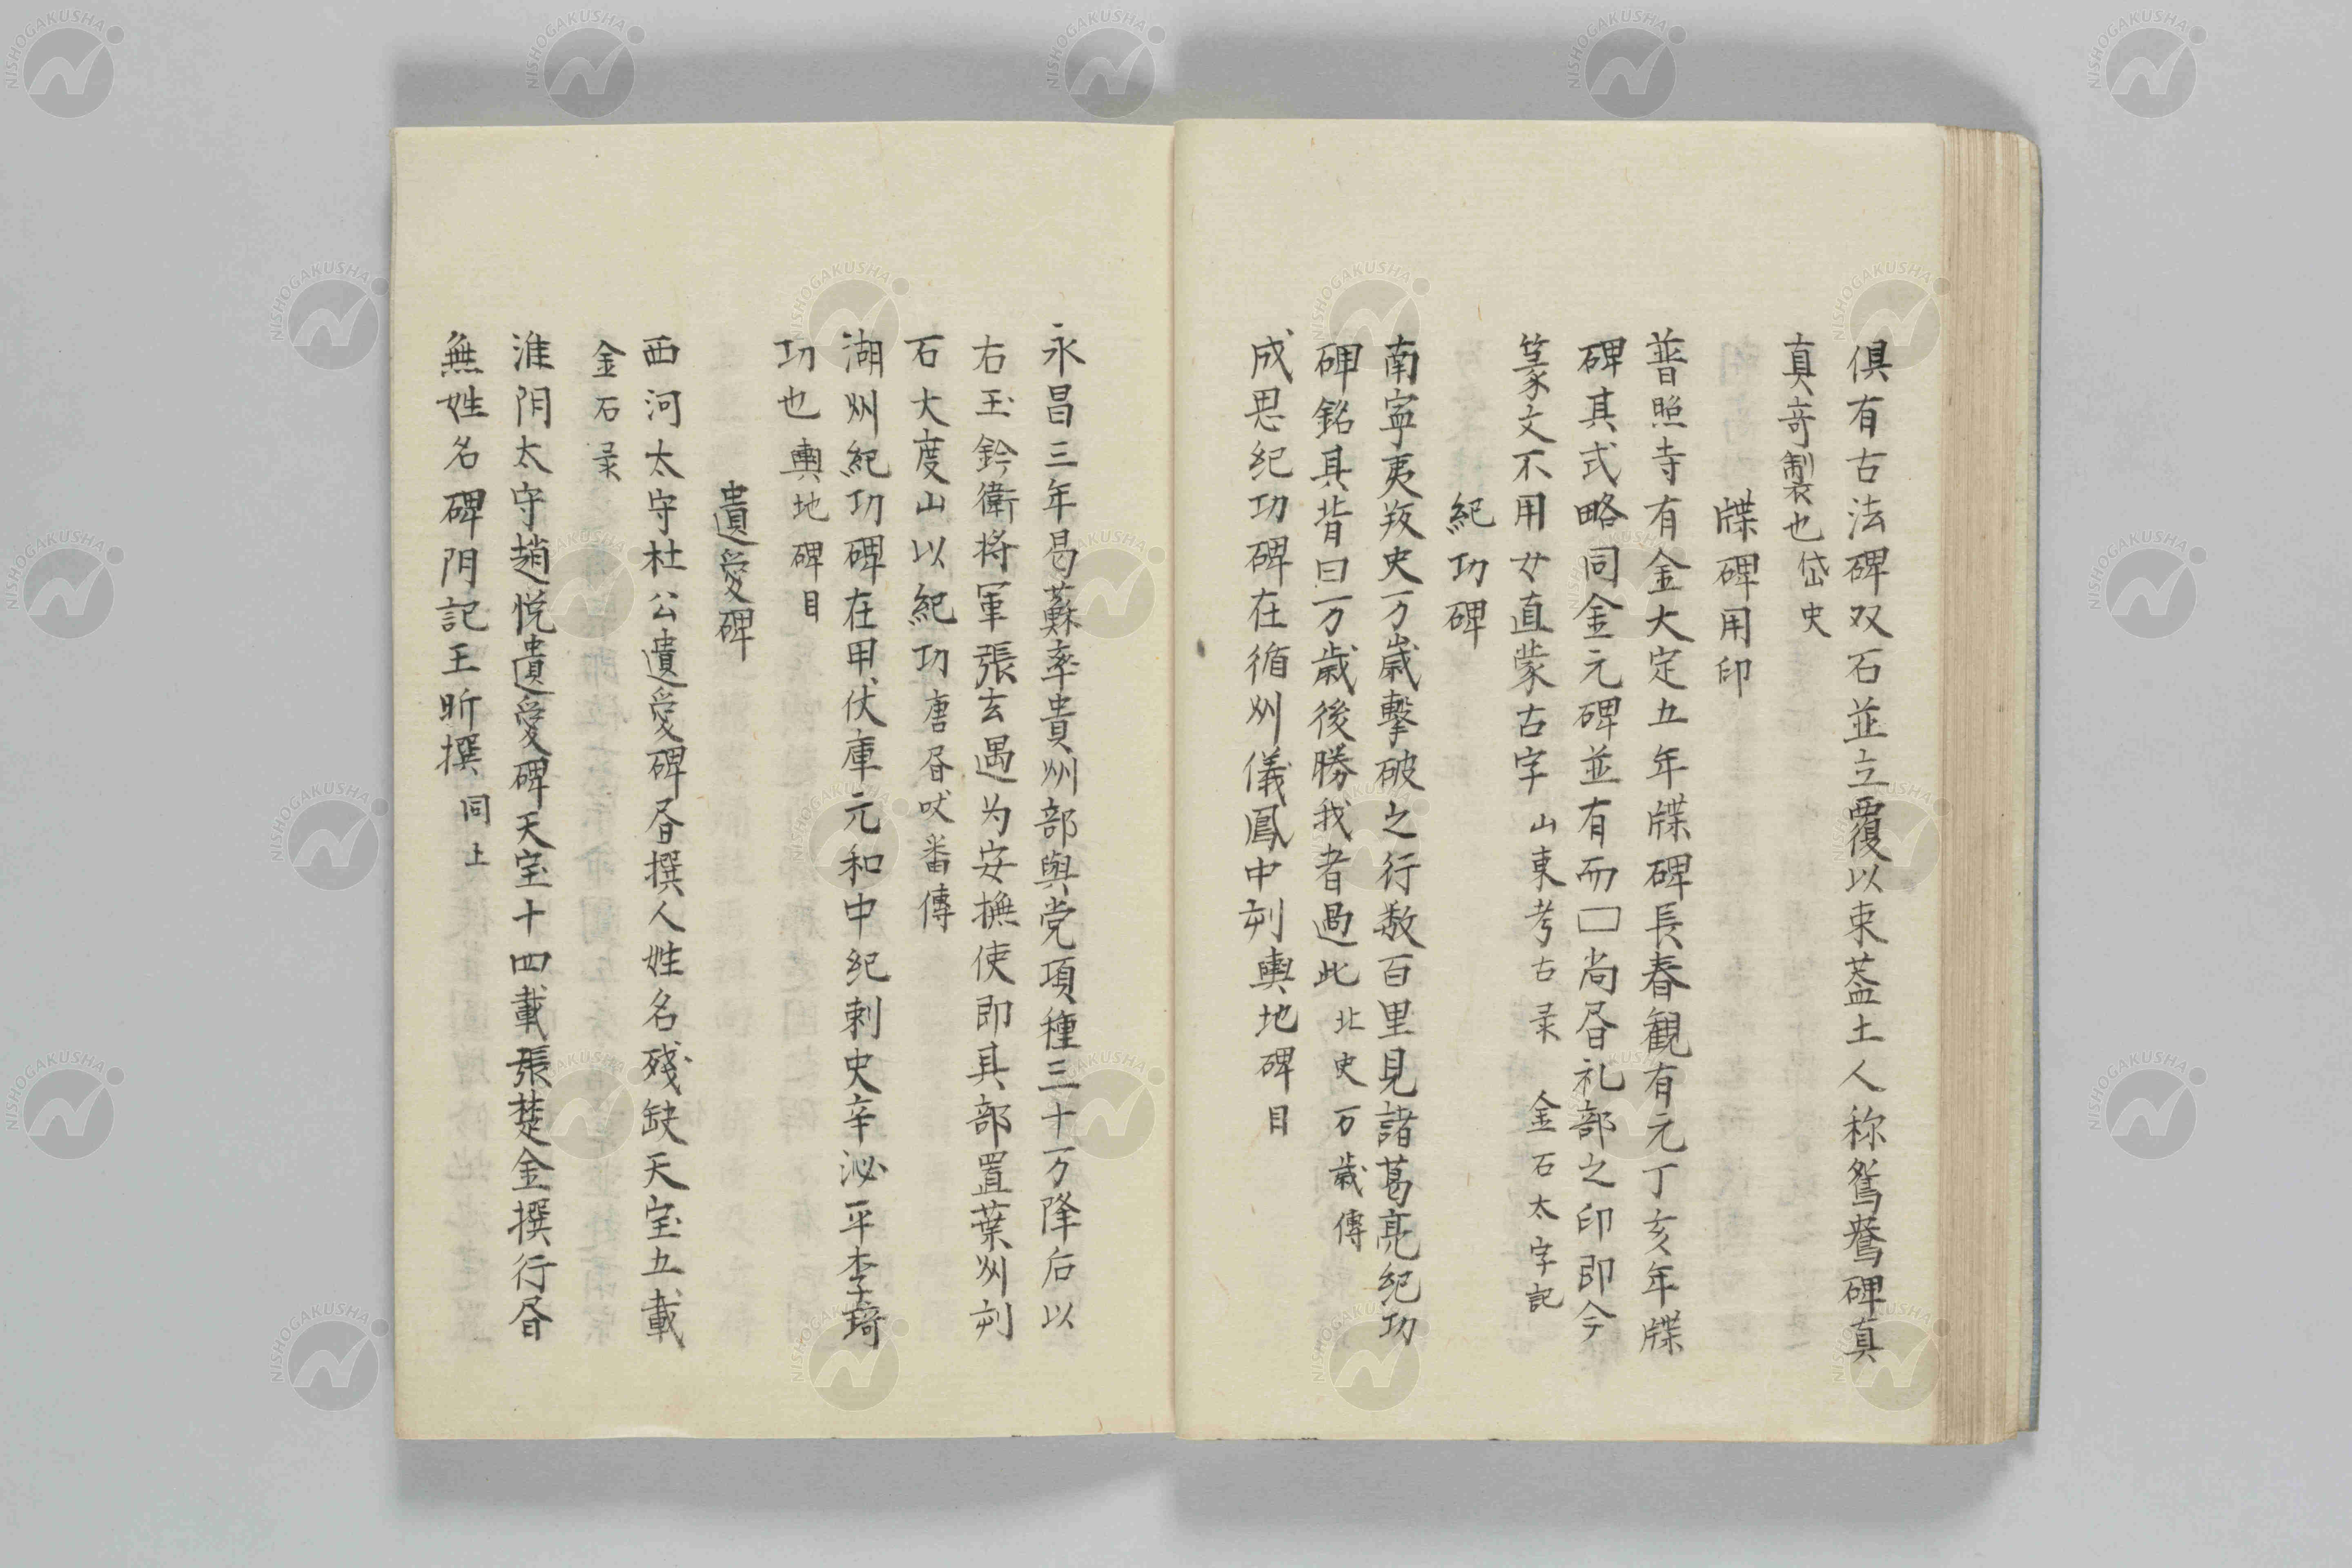 俱有古法碑双石並立覆以束葢土人称鴛鴦碑真
真奇製也岱史
牒碑用印
普照寺有金大定五年牒碑長春観有元丁亥年牒
碑其式略同金元碑並有而囗尚昏礼部之印即今
篆文不用女直蒙古字山東考古录 金石太字記
紀功碑
南寧夷叛史万歳擊破之行数百里見諸葛亮紀功
碑銘其背曰万歳後勝我者過此北史万歳傳
成思纪功碑在循州儀鳳中刻輿地碑目
永昌三年曷蘇率貴州部與党項種三十万降后以
右玉鈐衛将軍張玄遇为安撫使即其部置葉州刻
石大度山以紀功唐昏吠番傳
湖州紀功碑在甲伏庫元和中纪刺史辛泌平李琦
功也輿地碑目
遺愛碑
西河太守杜公遺愛碑昏撰人姓名殘缺天宝五載
金石录
淮阴太守趙悦遺愛碑天宝十四載張楚金撰行昏
無姓名碑阴記王昕撰同上
NISHOGAKUSHA